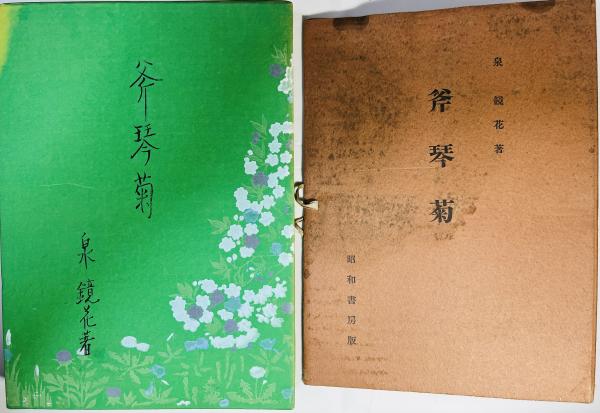 斧琴菊
泉鏡花著
泉鏡花著
斧琴菊
昭和書房版